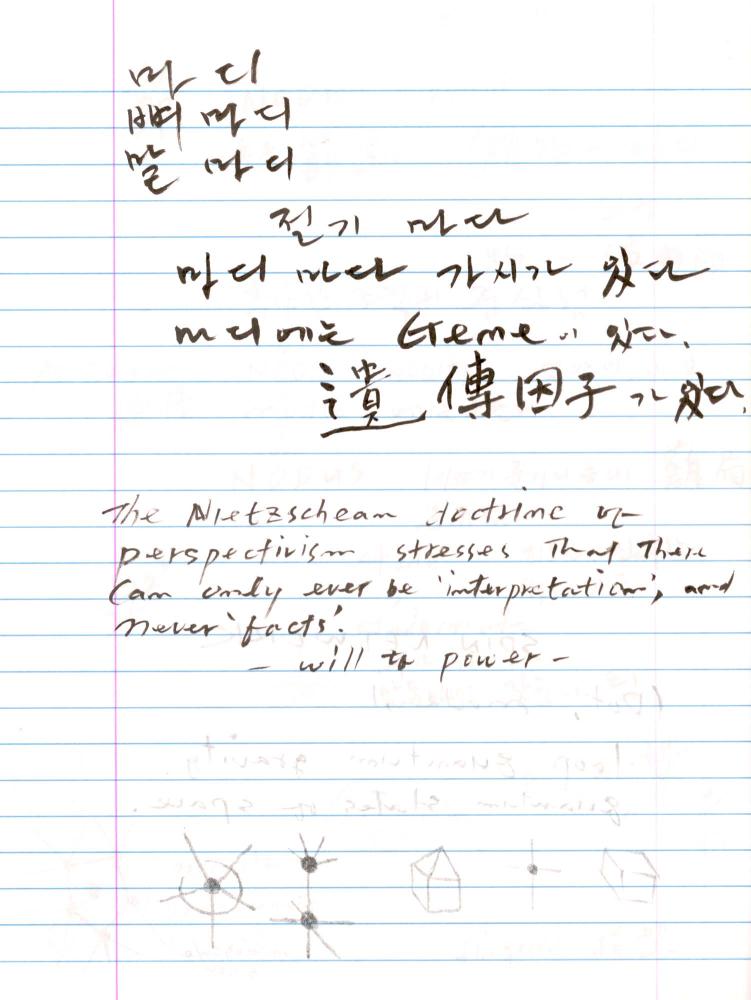 마 디
뼈 마 디
말 마 디
절기 마다
마디 마다 가시가 있다
마디에는 Gene이 있다.
遺傳因子가 있다.
The Nietzschean doctrine of
perspectivism stresses that there
can only ever be 'interpretation', and
never 'facts'.
- will to power -